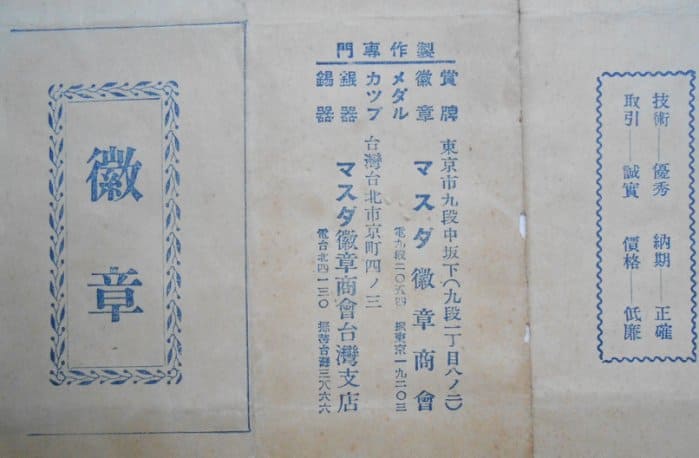 技術―優秀 納期―正確
取引―誠實 價格―低廉
製作專門
賞牌
徽章
メダル
カツプ
銀器
錫器
東京市九段中坂下(九段一丁目八ノ二)
マスダ徽章商會
電九段二〇五四 振東京一九二〇三
台灣台北市京町四ノ三
マスダ徽章商會台灣支店
電台北四一三〇 振替台灣三八六六
徽章